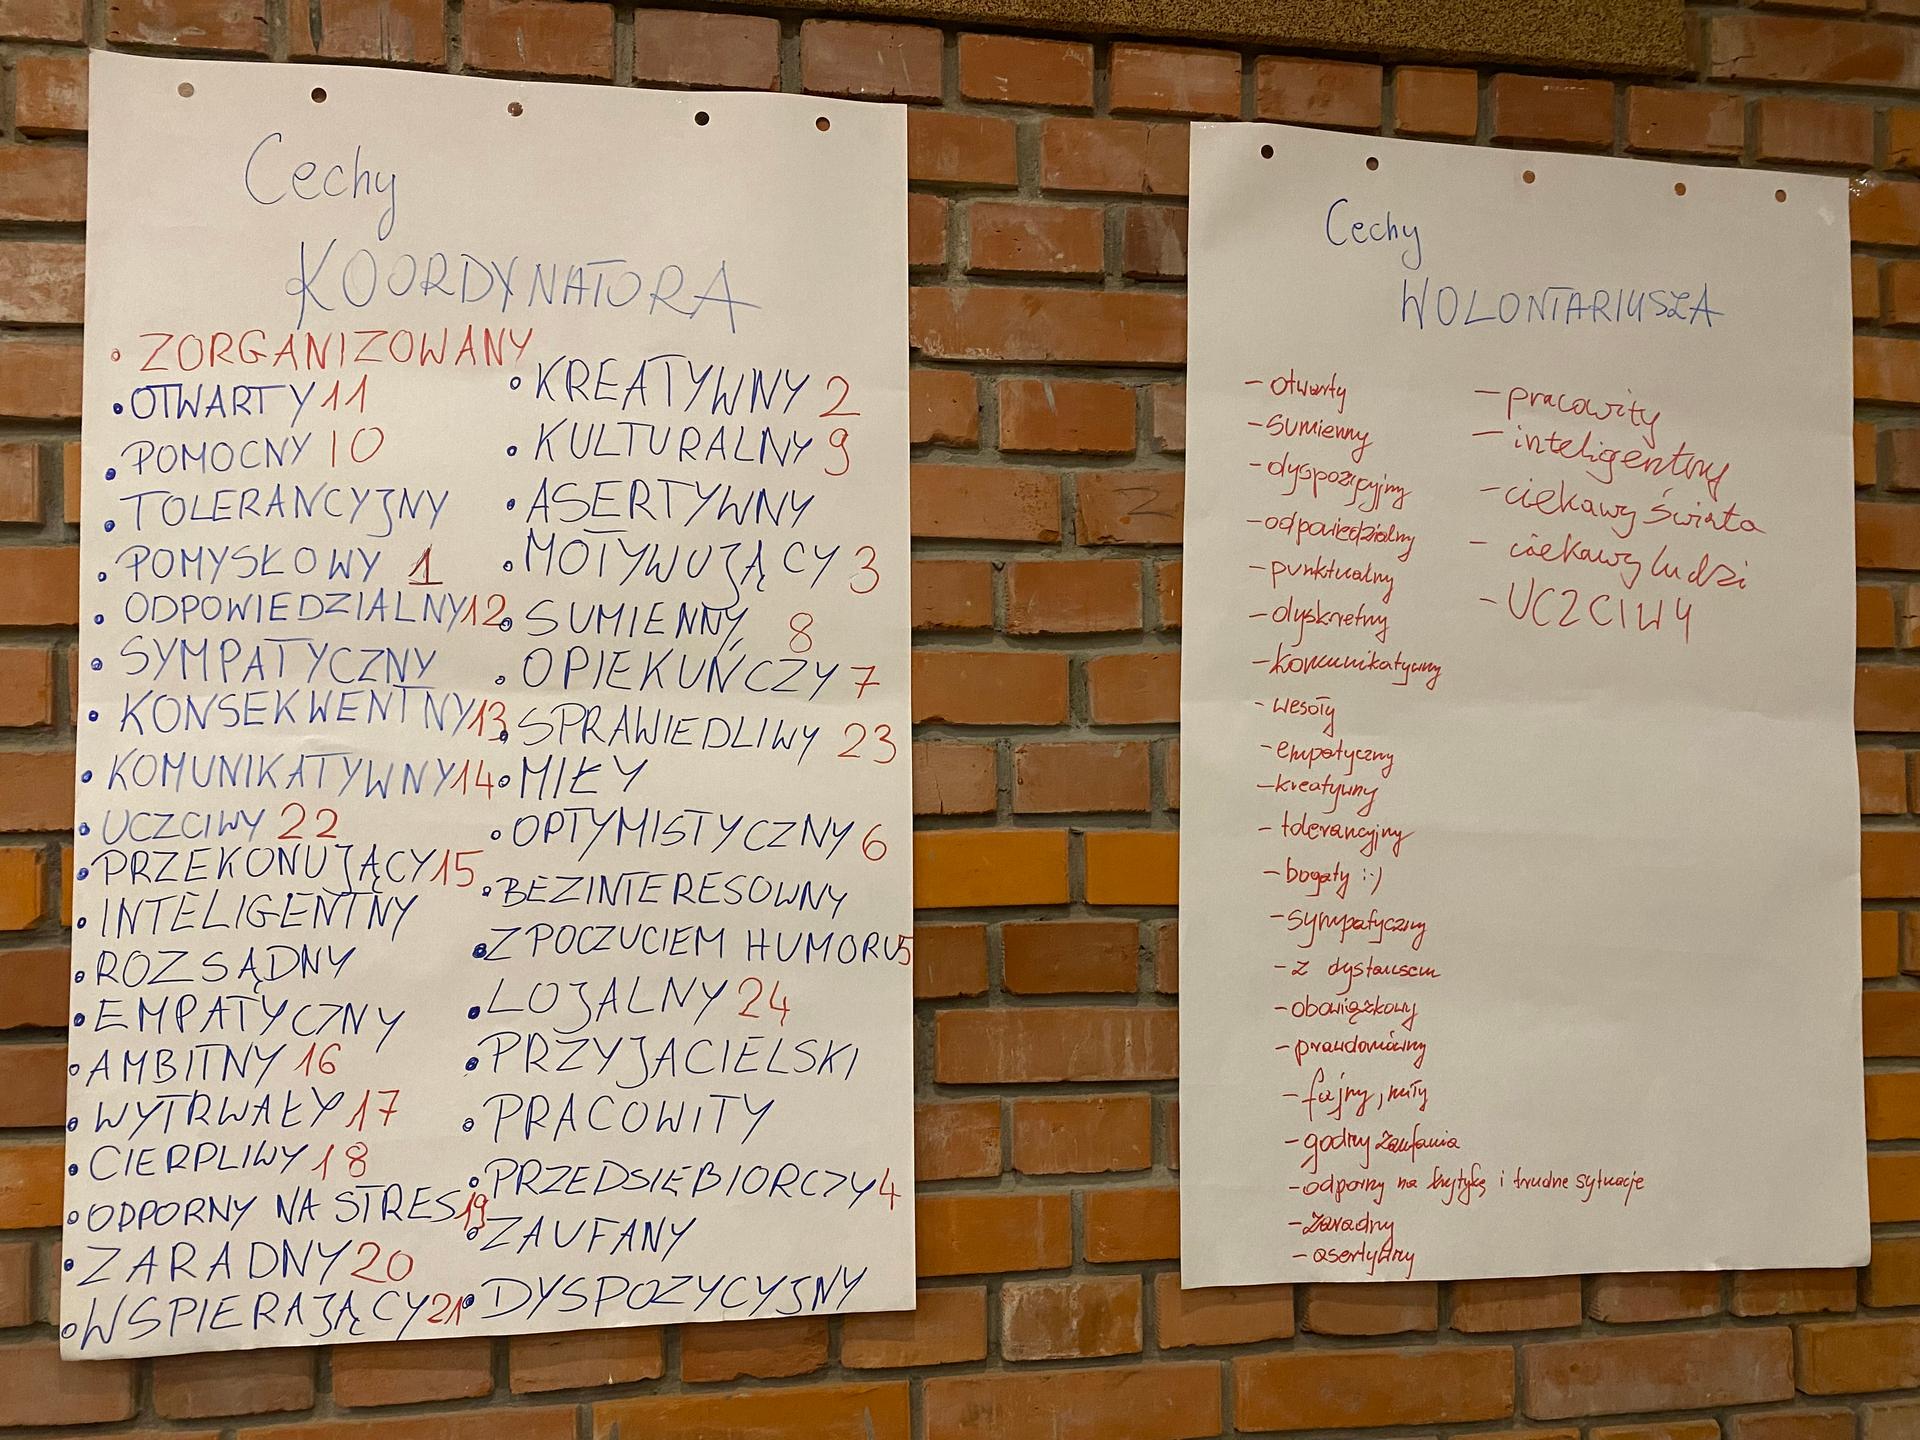 Cechy
KOORDYNATORA
ZORGANIZOWANY
• OTWARTY 11
• POMOCNY 10
• TOLERANCYJNY
• POMYSŁOWY 1
• ODPOWIEDZIALNY 12
• SYMPATYCZNY
• KONSEKWENTNY 13
• KOMUNIKATYWNY 14
• UCZCIWY 22
• PRZEKONUJĄCY 15
• INTELIGENTNY
• ROZSĄDNY
• EMPATYCZNY
• AMBITNY 16
• WYTRWAŁY 17
• CIERPLIWY 18
• ODPORNY NA STRES 19
• ZARADNY 20
• WSPIERAJĄCY 21
• KREATYWNY 2
• KULTURALNY 9
• ASERTYWNY
• MOTYWUJĄCY 3
• SUMIENNY 8
• OPIEKUŃCZY 7
• SPRAWIEDLIWY 23
• MIŁY
• OPTYMISTYCZNY 6
• BEZINTERESOWNY
• Z POCZUCIEM HUMORU 5
• LOJALNY 24
• PRZYJACIELSKI
• PRACOWITY
• PRZEDSIĘBIORCZY 4
• ZAUFANY
• DYSPOZYCYJNY
Cechy
WOLONTARIUSZA
- otwarty
- sumienny
- dyspozycyjny
- odpowiedzialny
- punktualny
- dyskretny
- komunikatywny
- wesoły
- empatyczny
- kreatywny
- tolerancyjny
- bogaty :-)
- sympatyczny
- z dystansem
- obowiązkowy
- prawdomówny
- fajny, miły
- godny zaufania
- odporny na krytykę i trudne sytuacje
- zaradny
- asertywny
- pracowity
- inteligentny
- ciekawy świata
- ciekawy ludzi
- UCZCIWY